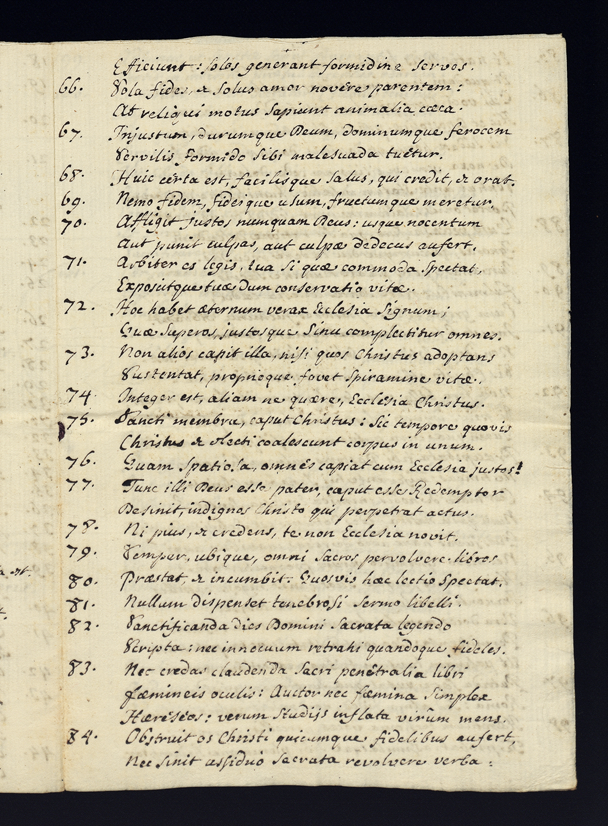 Efficiunt: solos generant formidine servos.
66. Sola fides, & solus amor novêre parentem:
At reliqui motus sapiunt animalia cæca.
67. Injustum, durumque Deum, dominumque ferocem
Servilis formido sibi malesuada tuêtur.
68. Huic certa est, facilisque salus, qui credit, & orat.
69. Nemo fidem, fideique usum, fructumque meretur.
70. Affligit justos numquam Deus: usque nocentum
Aut punit culpas, aut culpæ dedecus aufert.
71. Arbiter es legis, tua si quæ commoda spectat,
Exposcitque tuæ dum conservatio vitæ.
72. Hoc habet æternum veræ Ecclesia signum;
Quæ superos, justosque sinu complectitur omnes.
73. Non alios capit illa, nisi quos Christus adoptans
Sustentat, proprioque fovet spiramine vitæ.
74. Integer est, aliam ne quære, Ecclesia Christus.
75. Sancti membra, caput Christus: sic tempore quovis
Christus & electi coalescunt corpus in unum.
76. Quam spatiosa, omnes capiat cum Ecclesia justos!
77. Tunc illi Deus esse pater, caput esse Redemptor
Desinit, indignos Christo qui perpetrat actus.
78. Ni pius, & credens, te non Ecclesia novit.
79. Semper, ubique, omni sacros pervolvere libros
80. Præstat, & incumbit. Quosvis hæc lectio spectat.
81. Nullum dispenset tenebrosi sermo libelli.
82. Sanctificanda dies Domini sacrata legendo
Scripta: nec innocuum retrahi quandoque fideles.
83. Nec credas claudenda sacri penetralia libri
fœmineis oculis: Auctor nec fœmina simplex
Hæréseos: verum studijs inflata virûm mens.
84. Obstruit os Christi quicumque fidelibus aufert,
Nec sinit assiduò sacrata revolvere verba: